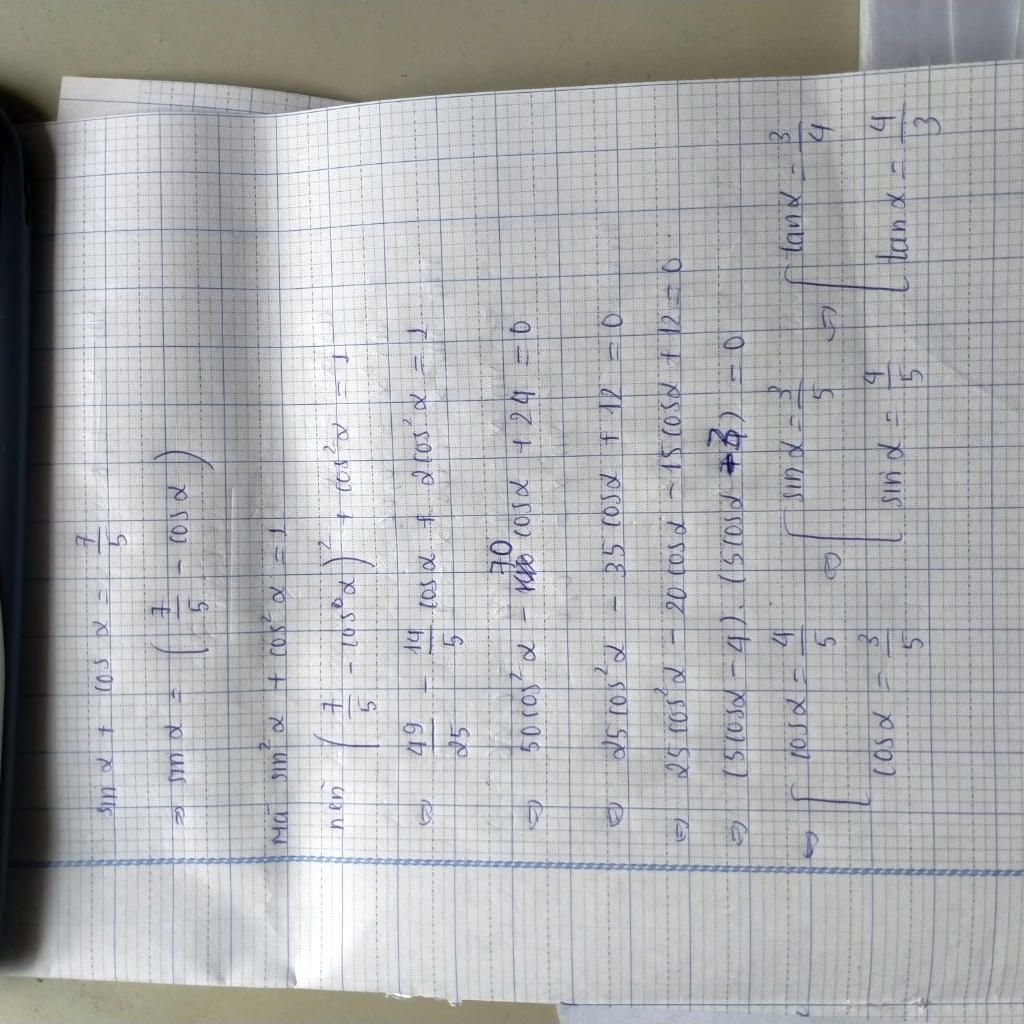 sin α + cos α = 7/5
⇒ sin α = (7/5 - cos α)
Mà sin²α + cos²α = 1
nên (7/5 - cos α)² + cos²α = 1
⇔ 49/25 - 14/5 cos α + 2cos²α = 1
⇔ 50cos²α - 70 cos α + 24 = 0
⇔ 25cos²α - 35 cos α + 12 = 0
⇔ 25cos²α - 20 cos α - 15 cos α + 12 = 0
⇔ (5cos α - 4).(5cos α - 3) = 0
⇔ [ cos α = 4/5 ⇔ [ sin α = 3/5 ⇔ [ tan α = 3/4
cos α = 3/5 sin α = 4/5 tan α = 4/3